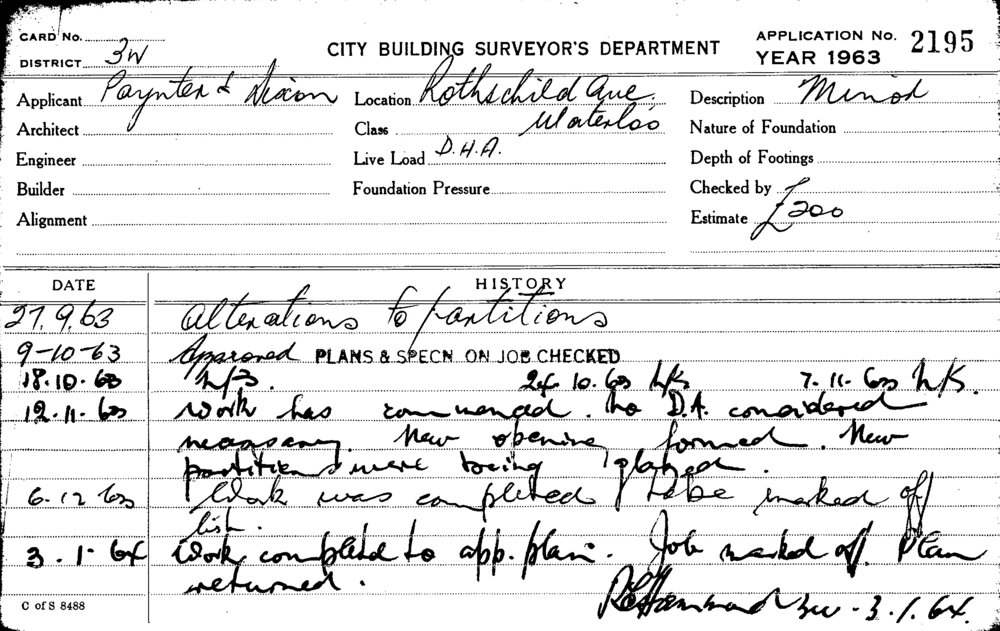 CARD No.
DISTRICT 3W
CITY BUILDING SURVEYOR'S DEPARTMENT
APPLICATION No. 2195
YEAR 1963
Applicant Paynter & Dixon
Location Rothschild Ave
Waterloo
Description Minor
Architect
Class
Nature of Foundation
Engineer
Live Load D.H.A.
Depth of Footings
Builder
Foundation Pressure
Checked by
Alignment
Estimate £200
DATE
HISTORY
27.9.63 Alterations to partitions
9-10-63 Approved PLANS & SPECN ON JOB CHECKED
18.10.63 24.10.63 7.11.63
12.11.63 Work has commenced. No D.A. considered
necessary. New opening formed. New
partitions were being placed.
6.12.63 Work was completed to be marked off
list.
3.1.64 Work completed to app. plan. Job marked off. Plan
returned.
3w - 3.1.64.
C of S 8488